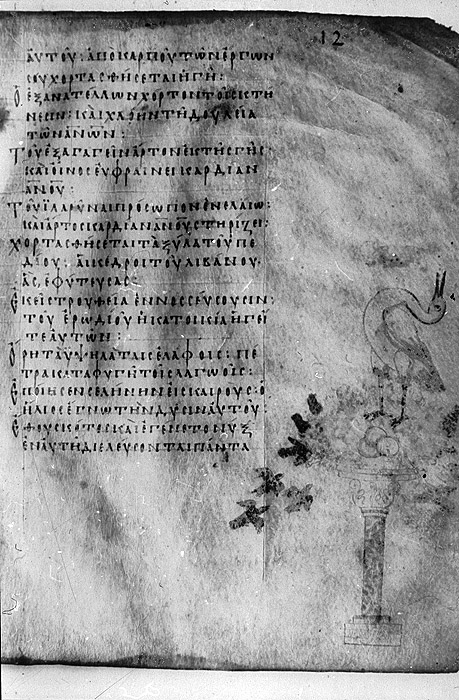 12
ἀυτοῦ· ἀπὸ καρποῦ τῶν ἔργων
σου χορτασθήσεται ἡ γῆ:
Ὁ ἐξανατέλλων χόρτον τοῖς κτή
νεσιν: καὶ χλόην τῆ δουλεία
τῶν ἀν̅ω̅ν:
Τοῦ ἐξαγαγεῖν ἄρτον ἐκ τῆς γῆς
καὶ οἶνος εὐφραίνει καρδίαν
ἀν̅ου̅:
Τοῦ ἱλαρῦναι πρόσωπον ἐν ἐλαίω:
καὶ ἄρτος καρδίαν ἀν̅ου̅ στηρίζει:
Χορτασθήσεται τὰ ξύλα τοῦ πε
δίου: ἁι κέδροι τοῦ λιβάνου
ἃς ἐφύτευσας
Ἐκεῖ στρουθία ἐννοσσεύσουσιν:
τοῦ ἐρωδιοῦ ἡ κατοικία ἡγεῖ
τε αὐτῶν:
Ὄρη τὰ ὑψηλὰ ταῖς ἐλάφοις: πέ
τρα καταφυγὴ τοῖς λαγωοῖς:
Ἐποίησεν σελήνην εἰς καιρούς: ὁ
ἥλιος ἔγνω τὴν δύσιν αὐτοῦ
Ἔθου σκότος καὶ ἐγένετο νὺξ
ἐν αὐτῆ διελεύσονται πάντα